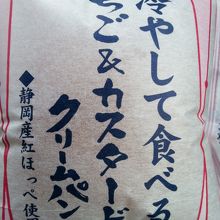 冷やして食べる
ちご&カスタード
クリームパン
◆静岡産紅ほっぺ使